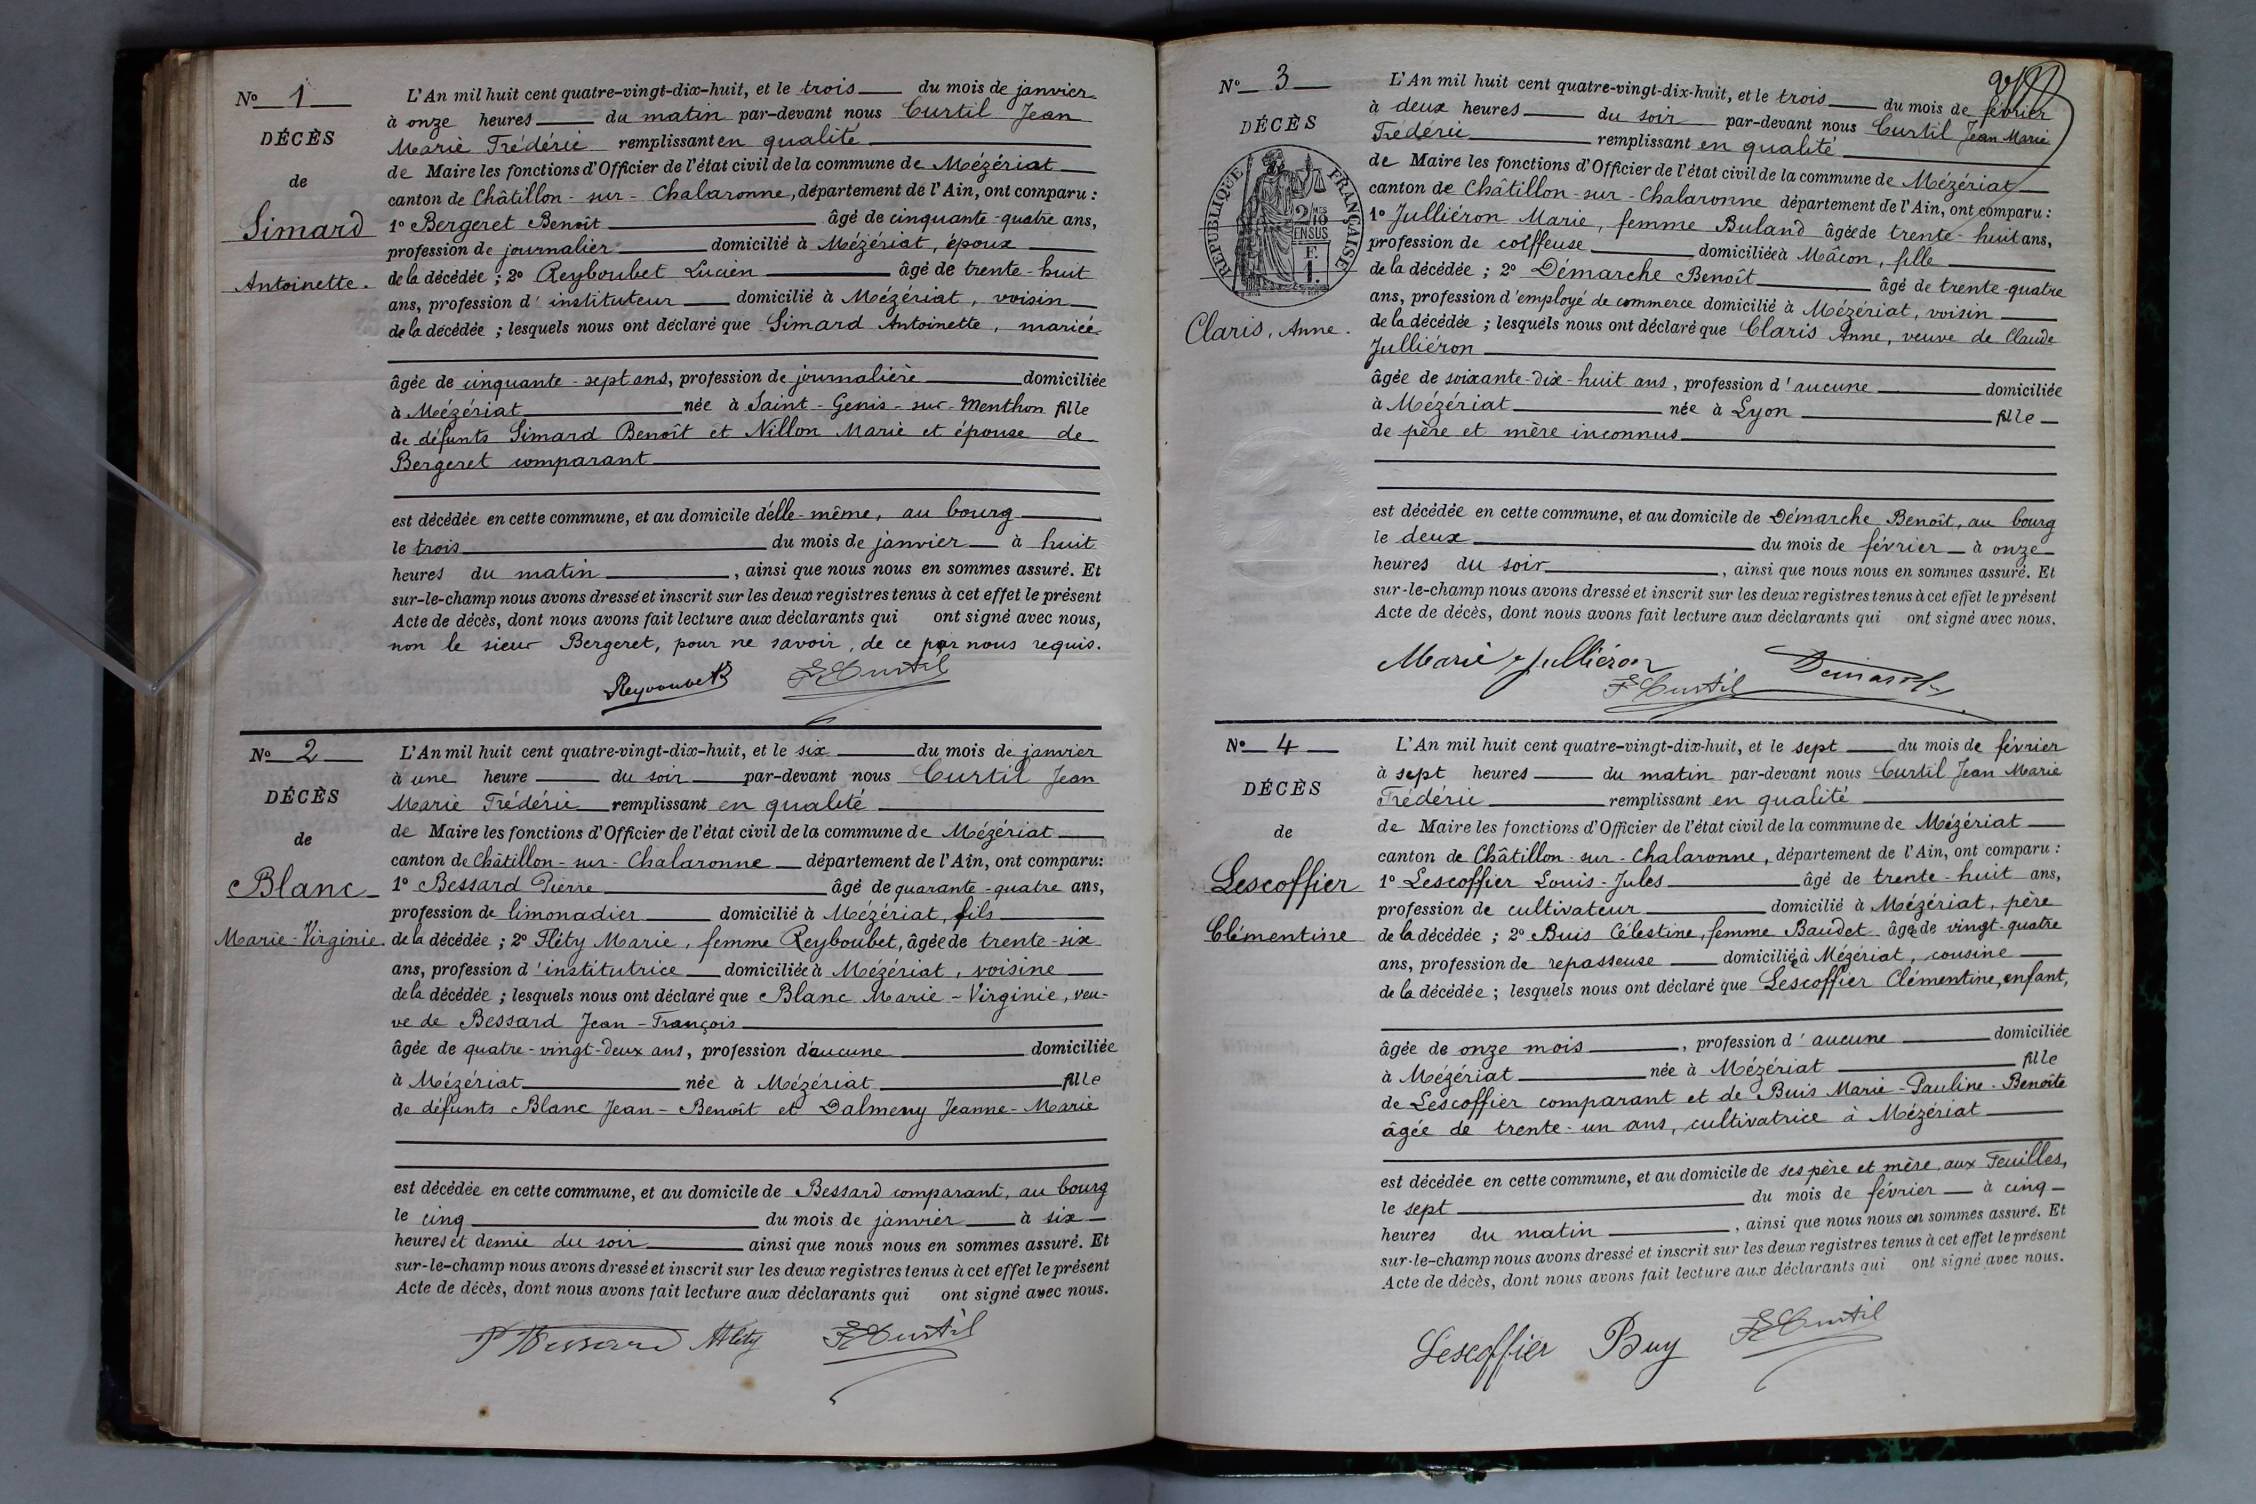 Nº 1
DÉCÈS
de
Simard
Antoinette.
L'An mil huit cent quatre-vingt-dix-huit, et le trois du mois de janvier
à onze heures du matin par-devant nous Curtil Jean
Marie Frédéric remplissant en qualité
de Maire les fonctions d'Officier de l'état civil de la commune de Mézériat
canton de Châtillon-sur-Chalaronne, département de l'Ain, ont comparu :
1º Bergeret Benoît âgé de cinquante-quatre ans,
profession de journalier domicilié à Mézériat, époux
de la décédée ; 2º Reyboubet Lucien âgé de trente-huit
ans, profession d'instituteur domicilié à Mézériat, voisin
de la décédée ; lesquels nous ont déclaré que Simard Antoinette, mariée
âgée de cinquante-sept ans, profession de journalière domiciliée
à Mézériat née à Saint-Genis-sur-Menthon fille
de défunts Simard Benoît et Nillon Marie et épouse de
Bergeret comparant
est décédée en cette commune, et au domicile d'elle-même, au bourg
le trois du mois de janvier à huit
heures du matin, ainsi que nous nous en sommes assuré. Et
sur-le-champ nous avons dressé et inscrit sur les deux registres tenus à cet effet le présent
Acte de décès, dont nous avons fait lecture aux déclarants qui ont signé avec nous,
non le sieur Bergeret, pour ne savoir, de ce par nous requis.
Reyboubet F Curtil
Nº 2
DÉCÈS
de
Blanc
Marie-Virginie.
L'An mil huit cent quatre-vingt-dix-huit, et le six du mois de janvier
à une heure du soir par-devant nous Curtil Jean
Marie Frédéric remplissant en qualité
de Maire les fonctions d'Officier de l'état civil de la commune de Mézériat
canton de Châtillon-sur-Chalaronne département de l'Ain, ont comparu:
1º Bessard Pierre âgé de quarante-quatre ans,
profession de limonadier domicilié à Mézériat, fils
de la décédée ; 2º Fléty Marie, femme Reyboubet, âgée de trente-six
ans, profession d'institutrice domiciliée à Mézériat, voisine
de la décédée ; lesquels nous ont déclaré que Blanc Marie-Virginie, veu-
ve de Bessard Jean-François
âgée de quatre-vingt-deux ans, profession d'aucune domiciliée
à Mézériat née à Mézériat fille
de défunts Blanc Jean-Benoît et Dalmeny Jeanne-Marie
est décédée en cette commune, et au domicile de Bessard comparant, au bourg
le cinq du mois de janvier à six
heures et demie du soir ainsi que nous nous en sommes assuré. Et
sur-le-champ nous avons dressé et inscrit sur les deux registres tenus à cet effet le présent
Acte de décès, dont nous avons fait lecture aux déclarants qui ont signé avec nous.
P Bessard M Fléty F Curtil
Nº 3
DÉCÈS
RÉPUBLIQUE FRANÇAISE
2/10 MES
EN SUS
F.
1.
Claris, Anne.
L'An mil huit cent quatre-vingt-dix-huit, et le trois du mois de février
à deux heures du soir par-devant nous Curtil Jean Marie
Frédéric remplissant en qualité
de Maire les fonctions d'Officier de l'état civil de la commune de Mézériat
canton de Châtillon-sur-Chalaronne département de l'Ain, ont comparu :
1º Julliéron Marie, femme Buland âgée de trente-huit ans,
profession de coiffeuse domiciliée à Mâcon, fille
de la décédée ; 2º Démarche Benoît âgé de trente-quatre
ans, profession d'employé de commerce domicilié à Mézériat, voisin
de la décédée ; lesquels nous ont déclaré que Claris Anne, veuve de Claude
Julliéron
âgée de soixante-dix-huit ans, profession d'aucune domiciliée
à Mézériat née à Lyon fille
de père et mère inconnus
est décédée en cette commune, et au domicile de Démarche Benoît, au bourg
le deux du mois de février à onze
heures du soir, ainsi que nous nous en sommes assuré. Et
sur-le-champ nous avons dressé et inscrit sur les deux registres tenus à cet effet le présent
Acte de décès, dont nous avons fait lecture aux déclarants qui ont signé avec nous.
Marie Julliéron F Curtil Démarche
Nº 4
DÉCÈS
de
Lescoffier
Clémentine
L'An mil huit cent quatre-vingt-dix-huit, et le sept du mois de février
à sept heures du matin par-devant nous Curtil Jean Marie
Frédéric remplissant en qualité
de Maire les fonctions d'Officier de l'état civil de la commune de Mézériat
canton de Châtillon-sur-Chalaronne, département de l'Ain, ont comparu :
1º Lescoffier Louis-Jules âgé de trente-huit ans,
profession de cultivateur domicilié à Mézériat, père
de la décédée ; 2º Buis Célestine, femme Baudet âgée de vingt-quatre
ans, profession de repasseuse domiciliée à Mézériat, cousine
de la décédée ; lesquels nous ont déclaré que Lescoffier Clémentine, enfant,
âgée de onze mois, profession d'aucune domiciliée
à Mézériat née à Mézériat fille
de Lescoffier comparant et de Buis Marie-Pauline-Benoîte
âgée de trente-un ans, cultivatrice à Mézériat
est décédée en cette commune, et au domicile de ses père et mère, aux Feuilles,
le sept du mois de février à cinq
heures du matin, ainsi que nous nous en sommes assuré. Et
sur-le-champ nous avons dressé et inscrit sur les deux registres tenus à cet effet le présent
Acte de décès, dont nous avons fait lecture aux déclarants qui ont signé avec nous.
Lescoffier Buy F Curtil